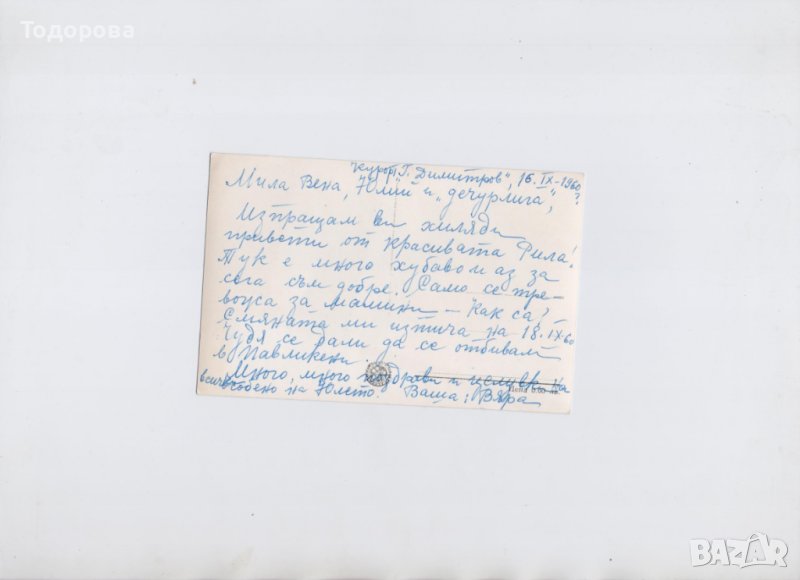 Тодорова
Курорт „Г. Димитров", 16.IX-1960 г.
Мила Вена, Юлий и „дечурлига",
Изпращам ви хиляди
привети от красивата Рила!
Тук е много хубаво и аз за
сега съм добре. Само се тре-
вожа за мамини – Как са?
Смяната ми изтича на 18.IX-60
Чудя се дали да се отбивам
в Павликени.
Много, много поздрави и целувки на
всички особено на Юлето. Ваша: Вяра
Цена 0.60 лв.
BAZAR